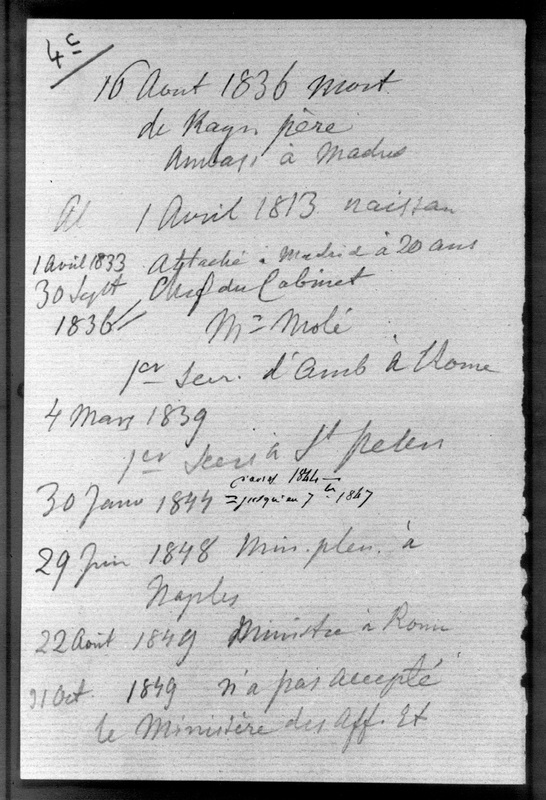 4c
16 Aout 1836 Mort
de Rayn père
Ambass à Madrid
Al 1 Avril 1813 naissan
1 Avril 1833 Attaché à Madrid à 20 ans
30 Sept Chef du Cabinet
1836 Mr Molé
1er Secr. d'Amb à Rome
4 Mars 1839
1er Secr à St Peters
30 Janv 1844 1844
= jusqu'au 7bre 1847
29 Juin 1848 Min. plen. à
Naples
22 Août 1849 Ministre à Rome
31 Oct. 1849 n'a pas accepté
le Ministère des Aff. Et